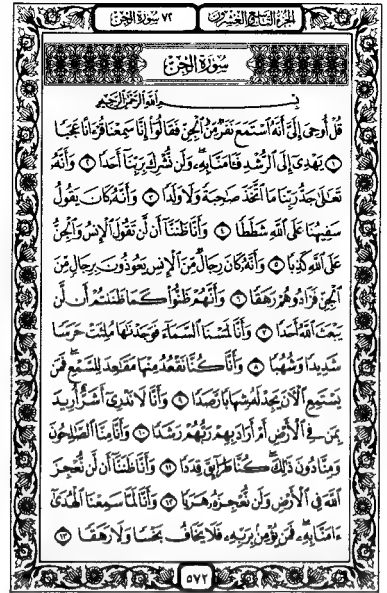 الجزء التاسع والعشرون
٧٢ سورة الجن
سُورَةُ الجِنِّ
بِسْمِ ٱللَّهِ ٱلرَّحْمَٰنِ ٱلرَّحِيمِ
قُلْ أُوحِىَ إِلَىَّ أَنَّهُ ٱسْتَمَعَ نَفَرٌ مِّنَ ٱلْجِنِّ فَقَالُوٓا۟ إِنَّا سَمِعْنَا قُرْءَانًا عَجَبًا
١ يَهْدِىٓ إِلَى ٱلرُّشْدِ فَـَٔامَنَّا بِهِۦ ۖ وَلَن نُّشْرِكَ بِرَبِّنَآ أَحَدًا ٢ وَأَنَّهُۥ
تَعَٰلَىٰ جَدُّ رَبِّنَا مَا ٱتَّخَذَ صَٰحِبَةً وَلَا وَلَدًا ٣ وَأَنَّهُۥ كَانَ يَقُولُ
سَفِيهُنَا عَلَى ٱللَّهِ شَطَطًا ٤ وَأَنَّا ظَنَنَّآ أَن لَّن تَقُولَ ٱلْإِنسُ وَٱلْجِنُّ
عَلَى ٱللَّهِ كَذِبًا ٥ وَأَنَّهُۥ كَانَ رِجَالٌ مِّنَ ٱلْإِنسِ يَعُوذُونَ بِرِجَالٍ مِّنَ
ٱلْجِنِّ فَزَادُوهُمْ رَهَقًا ٦ وَأَنَّهُمْ ظَنُّوا۟ كَمَا ظَنَنتُمْ أَن لَّن
يَبْعَثَ ٱللَّهُ أَحَدًا ٧ وَأَنَّا لَمَسْنَا ٱلسَّمَآءَ فَوَجَدْنَٰهَا مُلِئَتْ حَرَسًا
شَدِيدًا وَشُهُبًا ٨ وَأَنَّا كُنَّا نَقْعُدُ مِنْهَا مَقَٰعِدَ لِلسَّمْعِ ۖ فَمَن
يَسْتَمِعِ ٱلْـَٔانَ يَجِدْ لَهُۥ شِهَابًا رَّصَدًا ٩ وَأَنَّا لَا نَدْرِىٓ أَشَرٌّ أُرِيدَ
بِمَن فِى ٱلْأَرْضِ أَمْ أَرَادَ بِهِمْ رَبُّهُمْ رَشَدًا ١٠ وَأَنَّا مِنَّا ٱلصَّٰلِحُونَ
وَمِنَّا دُونَ ذَٰلِكَ ۖ كُنَّا طَرَآئِقَ قِدَدًا ١١ وَأَنَّا ظَنَنَّآ أَن لَّن نُّعْجِزَ
ٱللَّهَ فِى ٱلْأَرْضِ وَلَن نُّعْجِزَهُۥ هَرَبًا ١٢ وَأَنَّا لَمَّا سَمِعْنَا ٱلْهُدَىٰٓ
ءَامَنَّا بِهِۦ ۖ فَمَن يُؤْمِنۢ بِرَبِّهِۦ فَلَا يَخَافُ بَخْسًا وَلَا رَهَقًا ١٣
٥٧٢